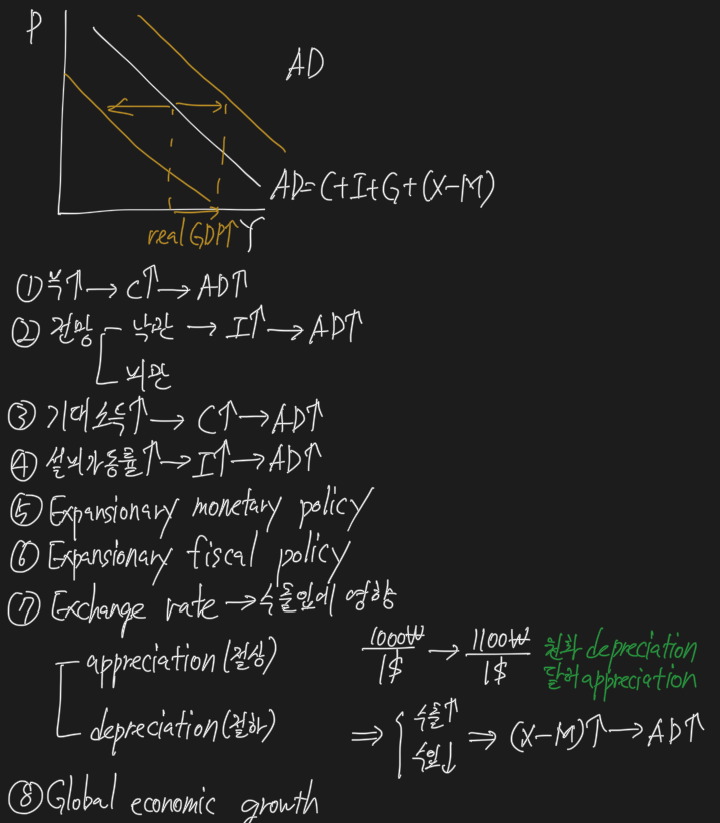 P
AD
AD=C+I+G+(X-M)
real GDP↑ Y
① 부↑→C↑→AD↑
② 전망 낙관 → I↑ → AD↑
비관
③ 기대소득↑ → C↑→AD↑
④ 설비가동률↑→I↑→AD↑
⑤ Expansionary monetary policy
⑥ Expansionary fiscal policy
⑦ Exchange rate → 수출입에 영향
appreciation(절상) 1000₩/1$ → 1100₩/1$ 원화 depreciation
달러 appreciation
depreciation(절하) ⇒ 수출↑ 수입↓ ⇒ (X-M)↑→AD↑
⑧ Global economic growth